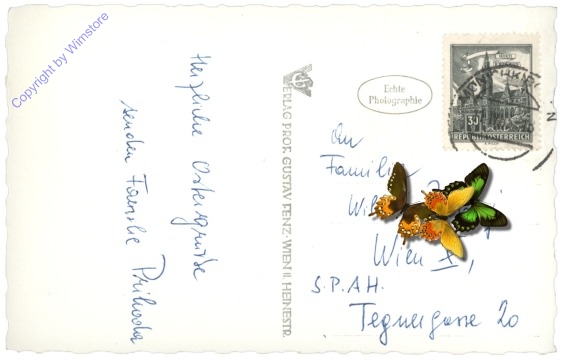 Copyright by Wimstore
Herzliche Ostergrüße
senden Familie Prihoda
VERLAG PROF. GUSTAV FENZ · WIEN II. HEINESTR.
Echte
Photographie
30
REPUBLIK ÖSTERREICH
An
Familie
Wien X,
S.P.A.H.
Tegnergasse 20